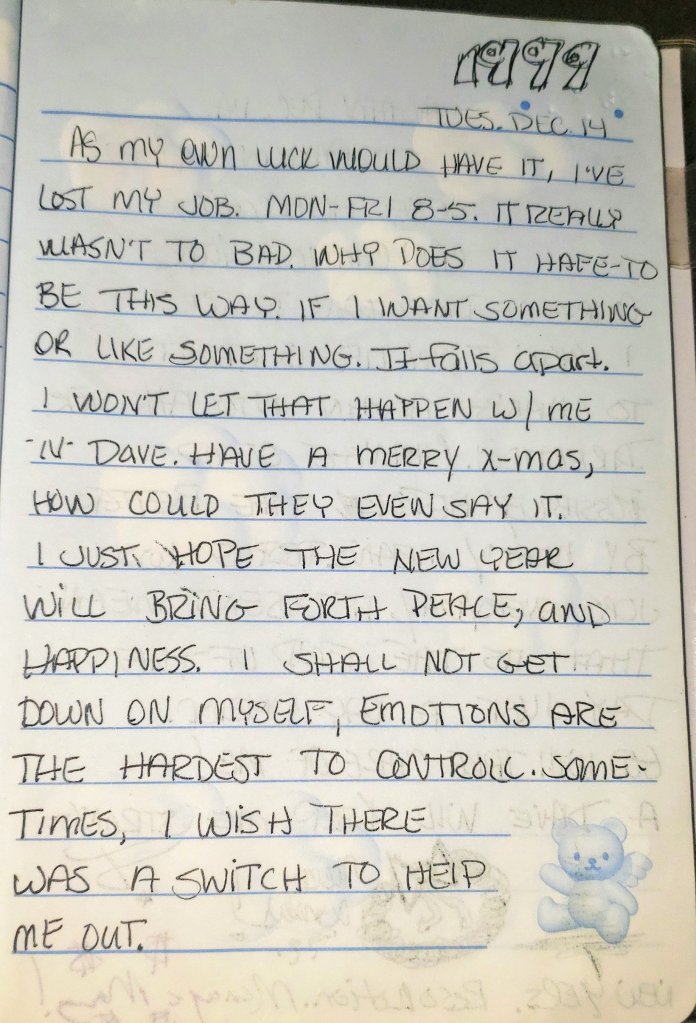 1999
TUES. DEC. 14
AS MY OWN LUCK WOULD HAVE IT, I'VE
LOST MY JOB. MON-FRI 8-5. IT REALLY
WASN'T TO BAD. WHY DOES IT HAFE-TO
BE THIS WAY. IF I WANT SOMETHING
OR LIKE SOMETHING. It falls apart.
I WON'T LET THAT HAPPEN W/ ME
-N- DAVE. HAVE A MERRY X-mas,
HOW COULD THEY EVEN SAY IT.
I JUST HOPE THE NEW YEAR
WILL BRING FORTH PEACE, AND
HAPPINESS. I SHALL NOT GET
DOWN ON MYSELF, EMOTIONS ARE
THE HARDEST TO CONTROLL. SOME-
TIMES, I WISH THERE
WAS A SWITCH TO HELP
ME OUT.